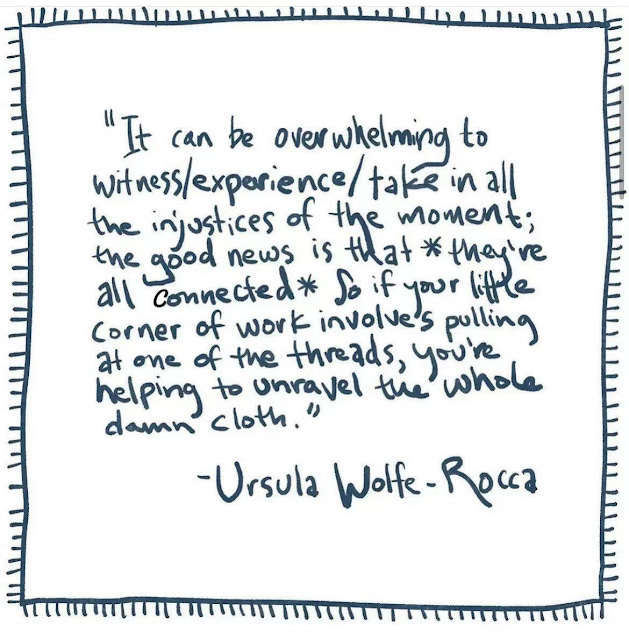 "It can be overwhelming to
witness/experience/take in all
the injustices of the moment;
the good news is that *they're
all connected* So if your little
corner of work involves pulling
at one of the threads, you're
helping to unravel the whole
damn cloth."
-Ursula Wolfe-Rocca